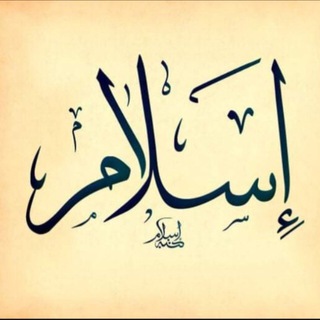 إسلام
كتبه إسلام